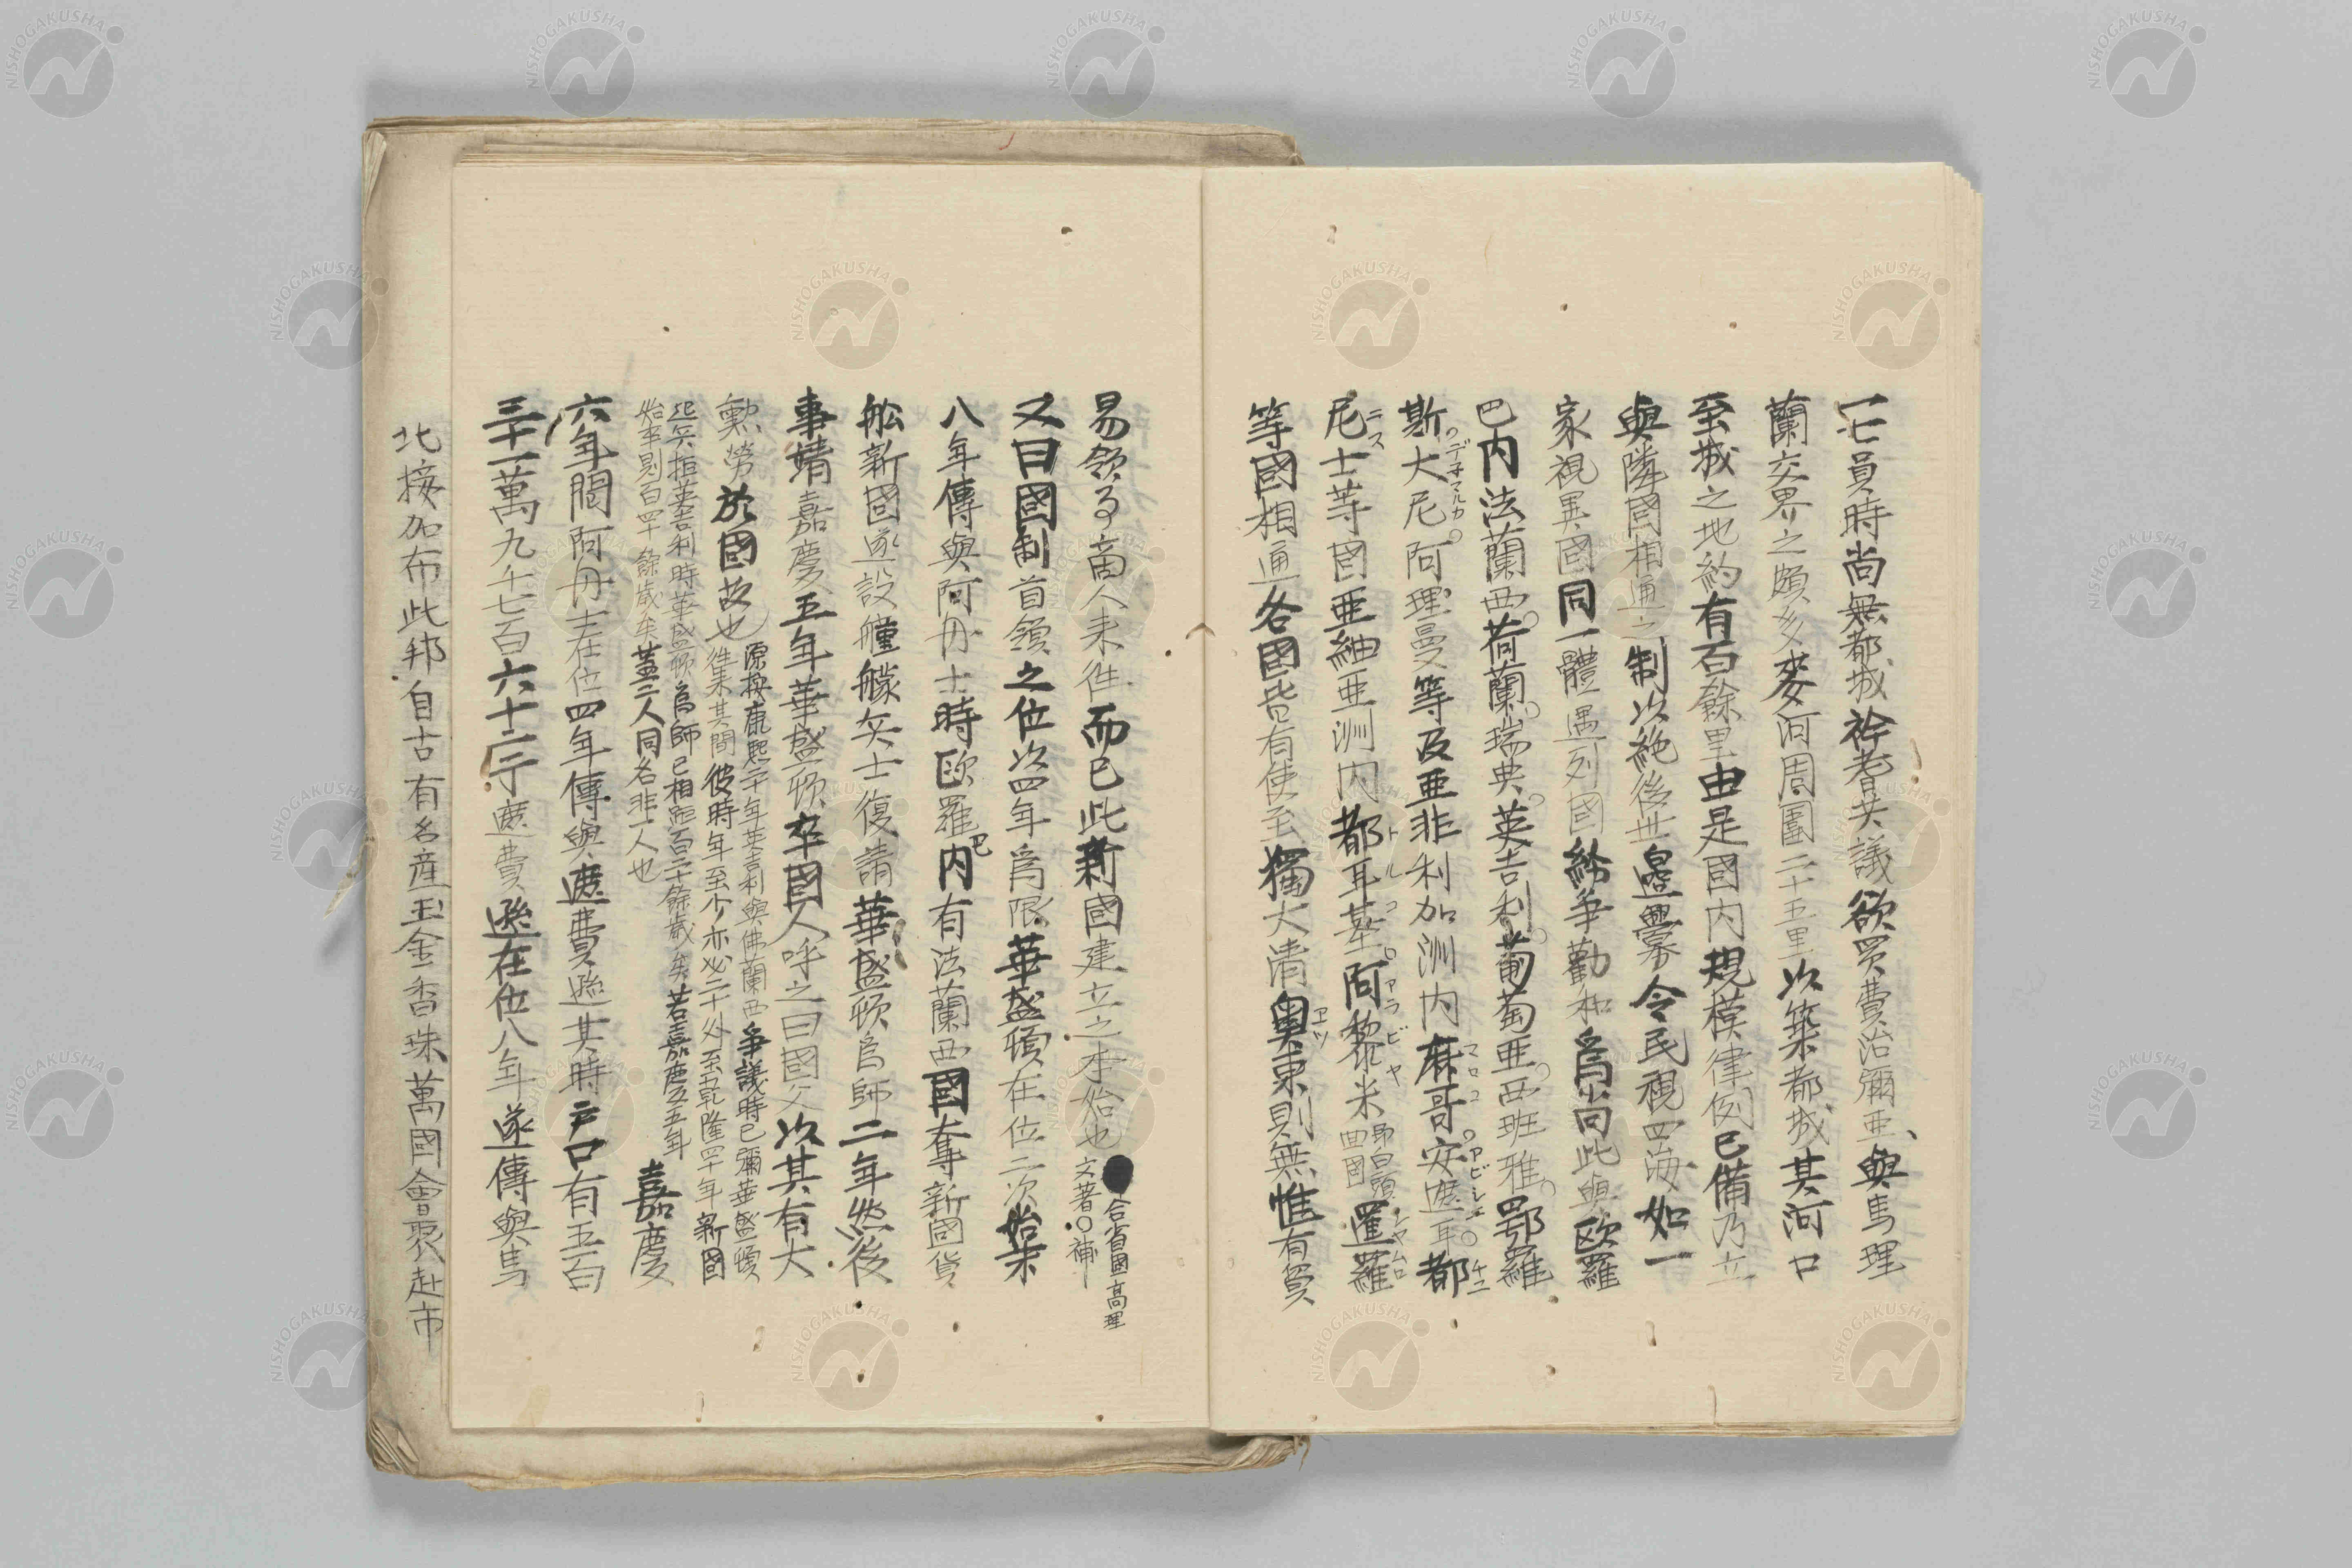 一七員時尚無都城衿耆共議欲買費治彌亜與馬理
蘭交界之頗多麥河周圍二十五里次築都城其河口
至城之地約有百餘里由是國内規模律例已備乃立
與隣國相通之制以絶後世邉釁令民視四海如一
家視異國同一體遇列國紛爭勸和爲尚此與歐羅
巴内法蘭西荷蘭瑞典英吉利葡萄亜西班雅鄂羅
斯大尼阿理曼等及亜非利加洲内麻哥安遮耳都
尼士等國亜細亜洲内都耳基阿黎米即白頭回國暹羅
等國相通各國皆有使至獨大清奥東則無惟有貿
易領事啇人来徃而已此新國建立之李始也文著○補
合省國高理
又曰國制首領之位以四年爲限華盛頓在位二次始末
八年傳與阿丹士時歐羅巴内有法蘭西國奪新國貨
舩新國遂設艟艨兵士復請華盛頓爲師二年然後
事婧嘉慶五年華盛頓卒國人呼之曰國父以其有大
勲勞於國故也源按康熙二十年英吉利與佛蘭西爭議時已彌華盛頓
徃集其間彼時年至少亦必二十外至乾隆四十年新國
起兵拒英吉利時華盛頓爲師已相距百二十餘歲矣若嘉慶五年
始卒則百四十餘歲矣葢二人同名非一人也嘉慶
六年間阿丹士在位四年傳與遮費遜其時戸口有五百
三十一萬九千七百六十二丁遮費遜在位八年遂傳與馬
北接加布此邦自古有名産玉金香珠萬國會聚赴市